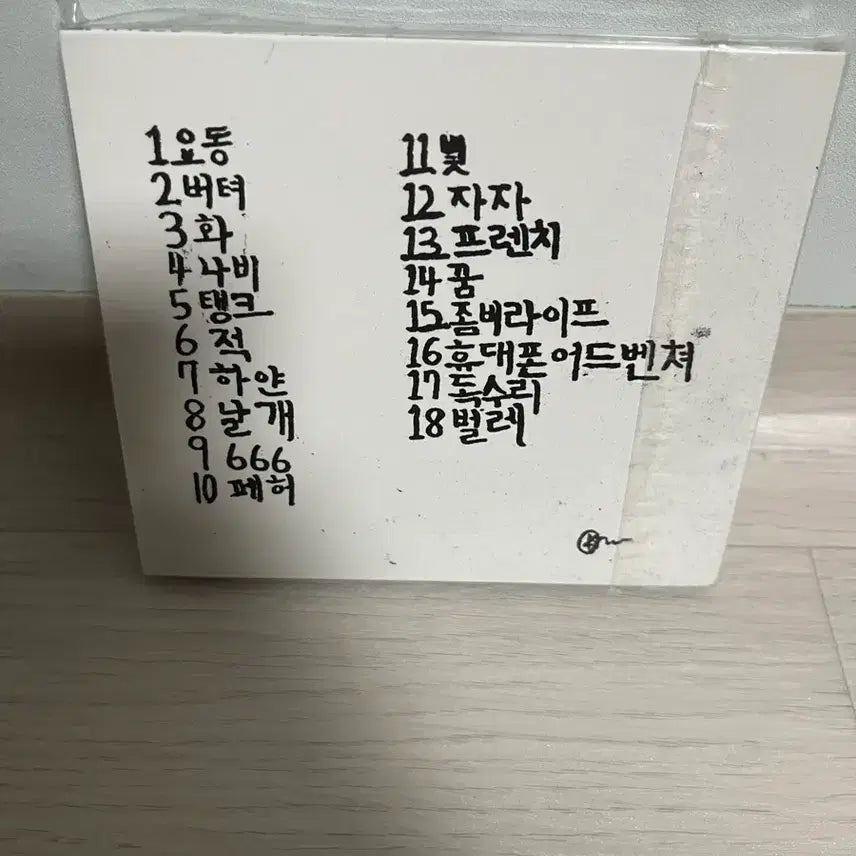 1 요동
2 버텨
3 화
4 나비
5 탱크
6 적
7 하얀
8 날개
9 666
10 폐허
11 빛
12 자자
13 프렌치
14 꿈
15 좀비라이프
16 휴대폰 어드벤쳐
17 독수리
18 벌레